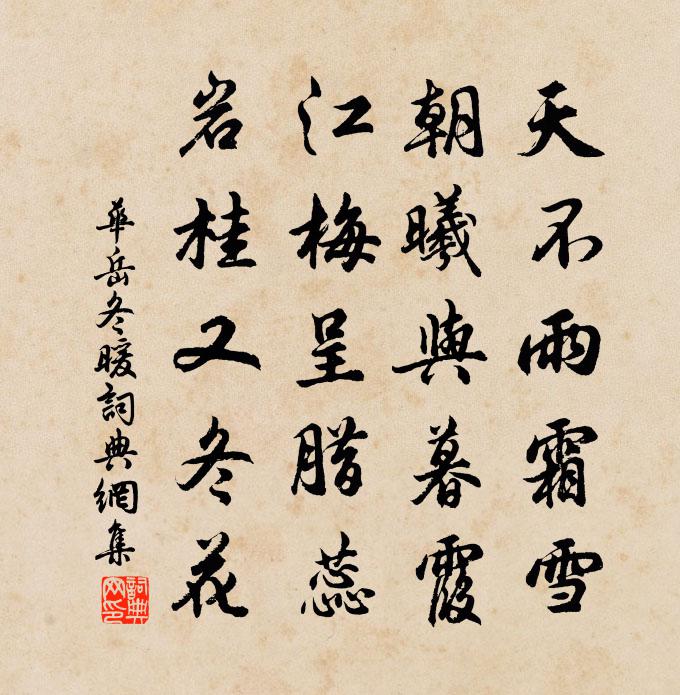 天不雨霜雪
朝曦與暮霞
江梅呈腊蕊
岩桂又冬花
華岳冬暖詞典網集
詞典网印